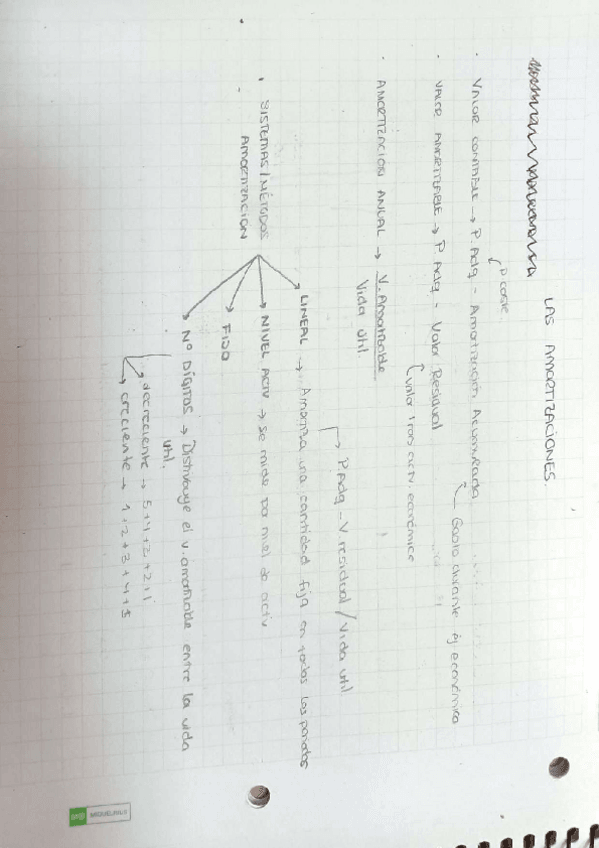 LAS AMORTIZACIONES.
P. coste
VALOR CONTABLE → P. Adq - Amortización Acumulada
Gasto durante ej económico
VALOR AMORTIZABLE → P. Adq - Valor Residual
valor tras activ. económica
AMORTIZACION ANUAL → V. Amortizable
Vida útil.
P. Adq - V. residual / Vida útil
SISTEMAS/MÉTODOS
AMORTIZACION
LINEAL → Amortiza una cantidad fija en todos los periodos
NIVEL ACTIV → se mide por nivel de activ
FIJO
Nº DÍGITOS → Distribuye el v. amortizable entre la vida
útil.
decreciente → 5+4+3+2+1
creciente → 1+2+3+4+5
MIQUELRIUS